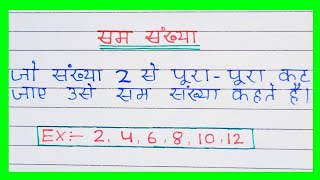 सम संख्या
जो संख्या 2 से पूरा-पूरा कट
जाए उसे सम संख्या कहते है।
EX:- 2, 4, 6, 8, 10, 12